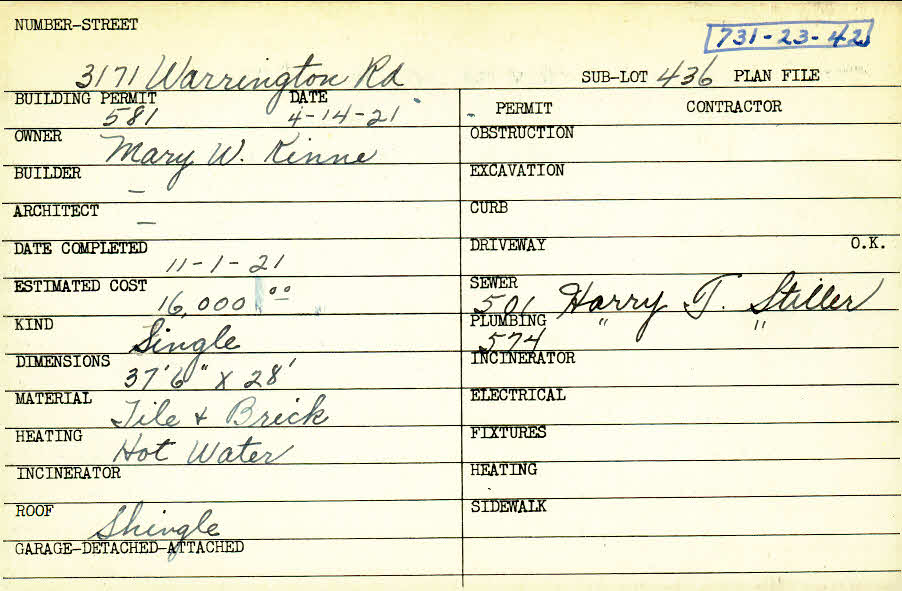 NUMBER-STREET
731-23-42
3171 Warrington Rd SUB-LOT 436 PLAN FILE
BUILDING PERMIT DATE
581 4-14-21
PERMIT CONTRACTOR
OWNER Mary W. Kinne
OBSTRUCTION
BUILDER –
EXCAVATION
ARCHITECT –
CURB
DATE COMPLETED
11-1-21
DRIVEWAY O.K.
ESTIMATED COST
16,000 00
SEWER
501 Harry T. Stiller
KIND Single
PLUMBING " "
574
DIMENSIONS
37'6" X 28'
INCINERATOR
MATERIAL Tile + Brick
ELECTRICAL
HEATING Hot Water
FIXTURES
INCINERATOR
HEATING
ROOF Shingle
SIDEWALK
GARAGE-DETACHED-ATTACHED